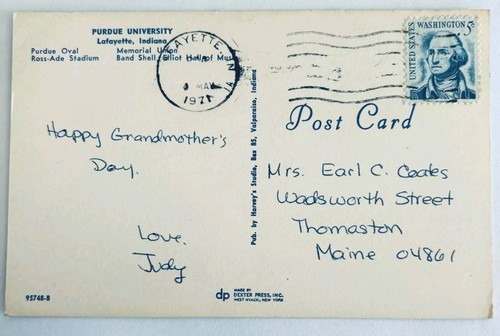 PURDUE UNIVERSITY
Lafayette, Indiana
Purdue Oval Memorial Union
Ross-Ade Stadium Band Shell, Elliot Hall of Music
LAFAYETTE, IN
MAY
1971
UNITED STATES
WASHINGTON 5c
Happy Grandmother's
Day.
Love,
Judy
Pub. by Harvey's Studio, Box 85, Valparaiso, Indiana
Post Card
Mrs. Earl C. Coates
Wadsworth Street
Thomaston
Maine 04861
95748-B
dp MADE BY
DEXTER PRESS, INC.
WEST NYACK, NEW YORK